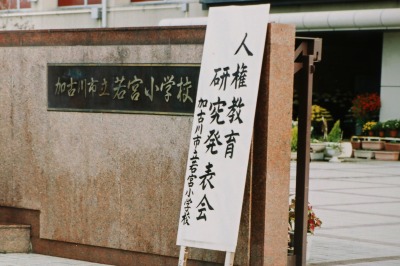 加古川市立若宮小学校
人権教育
研究発表会
加古川市立若宮小学校